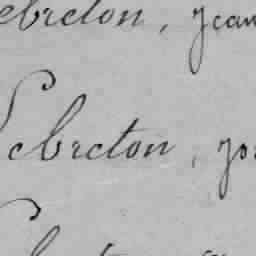 ebreton, Jean
Lebreton, Jos